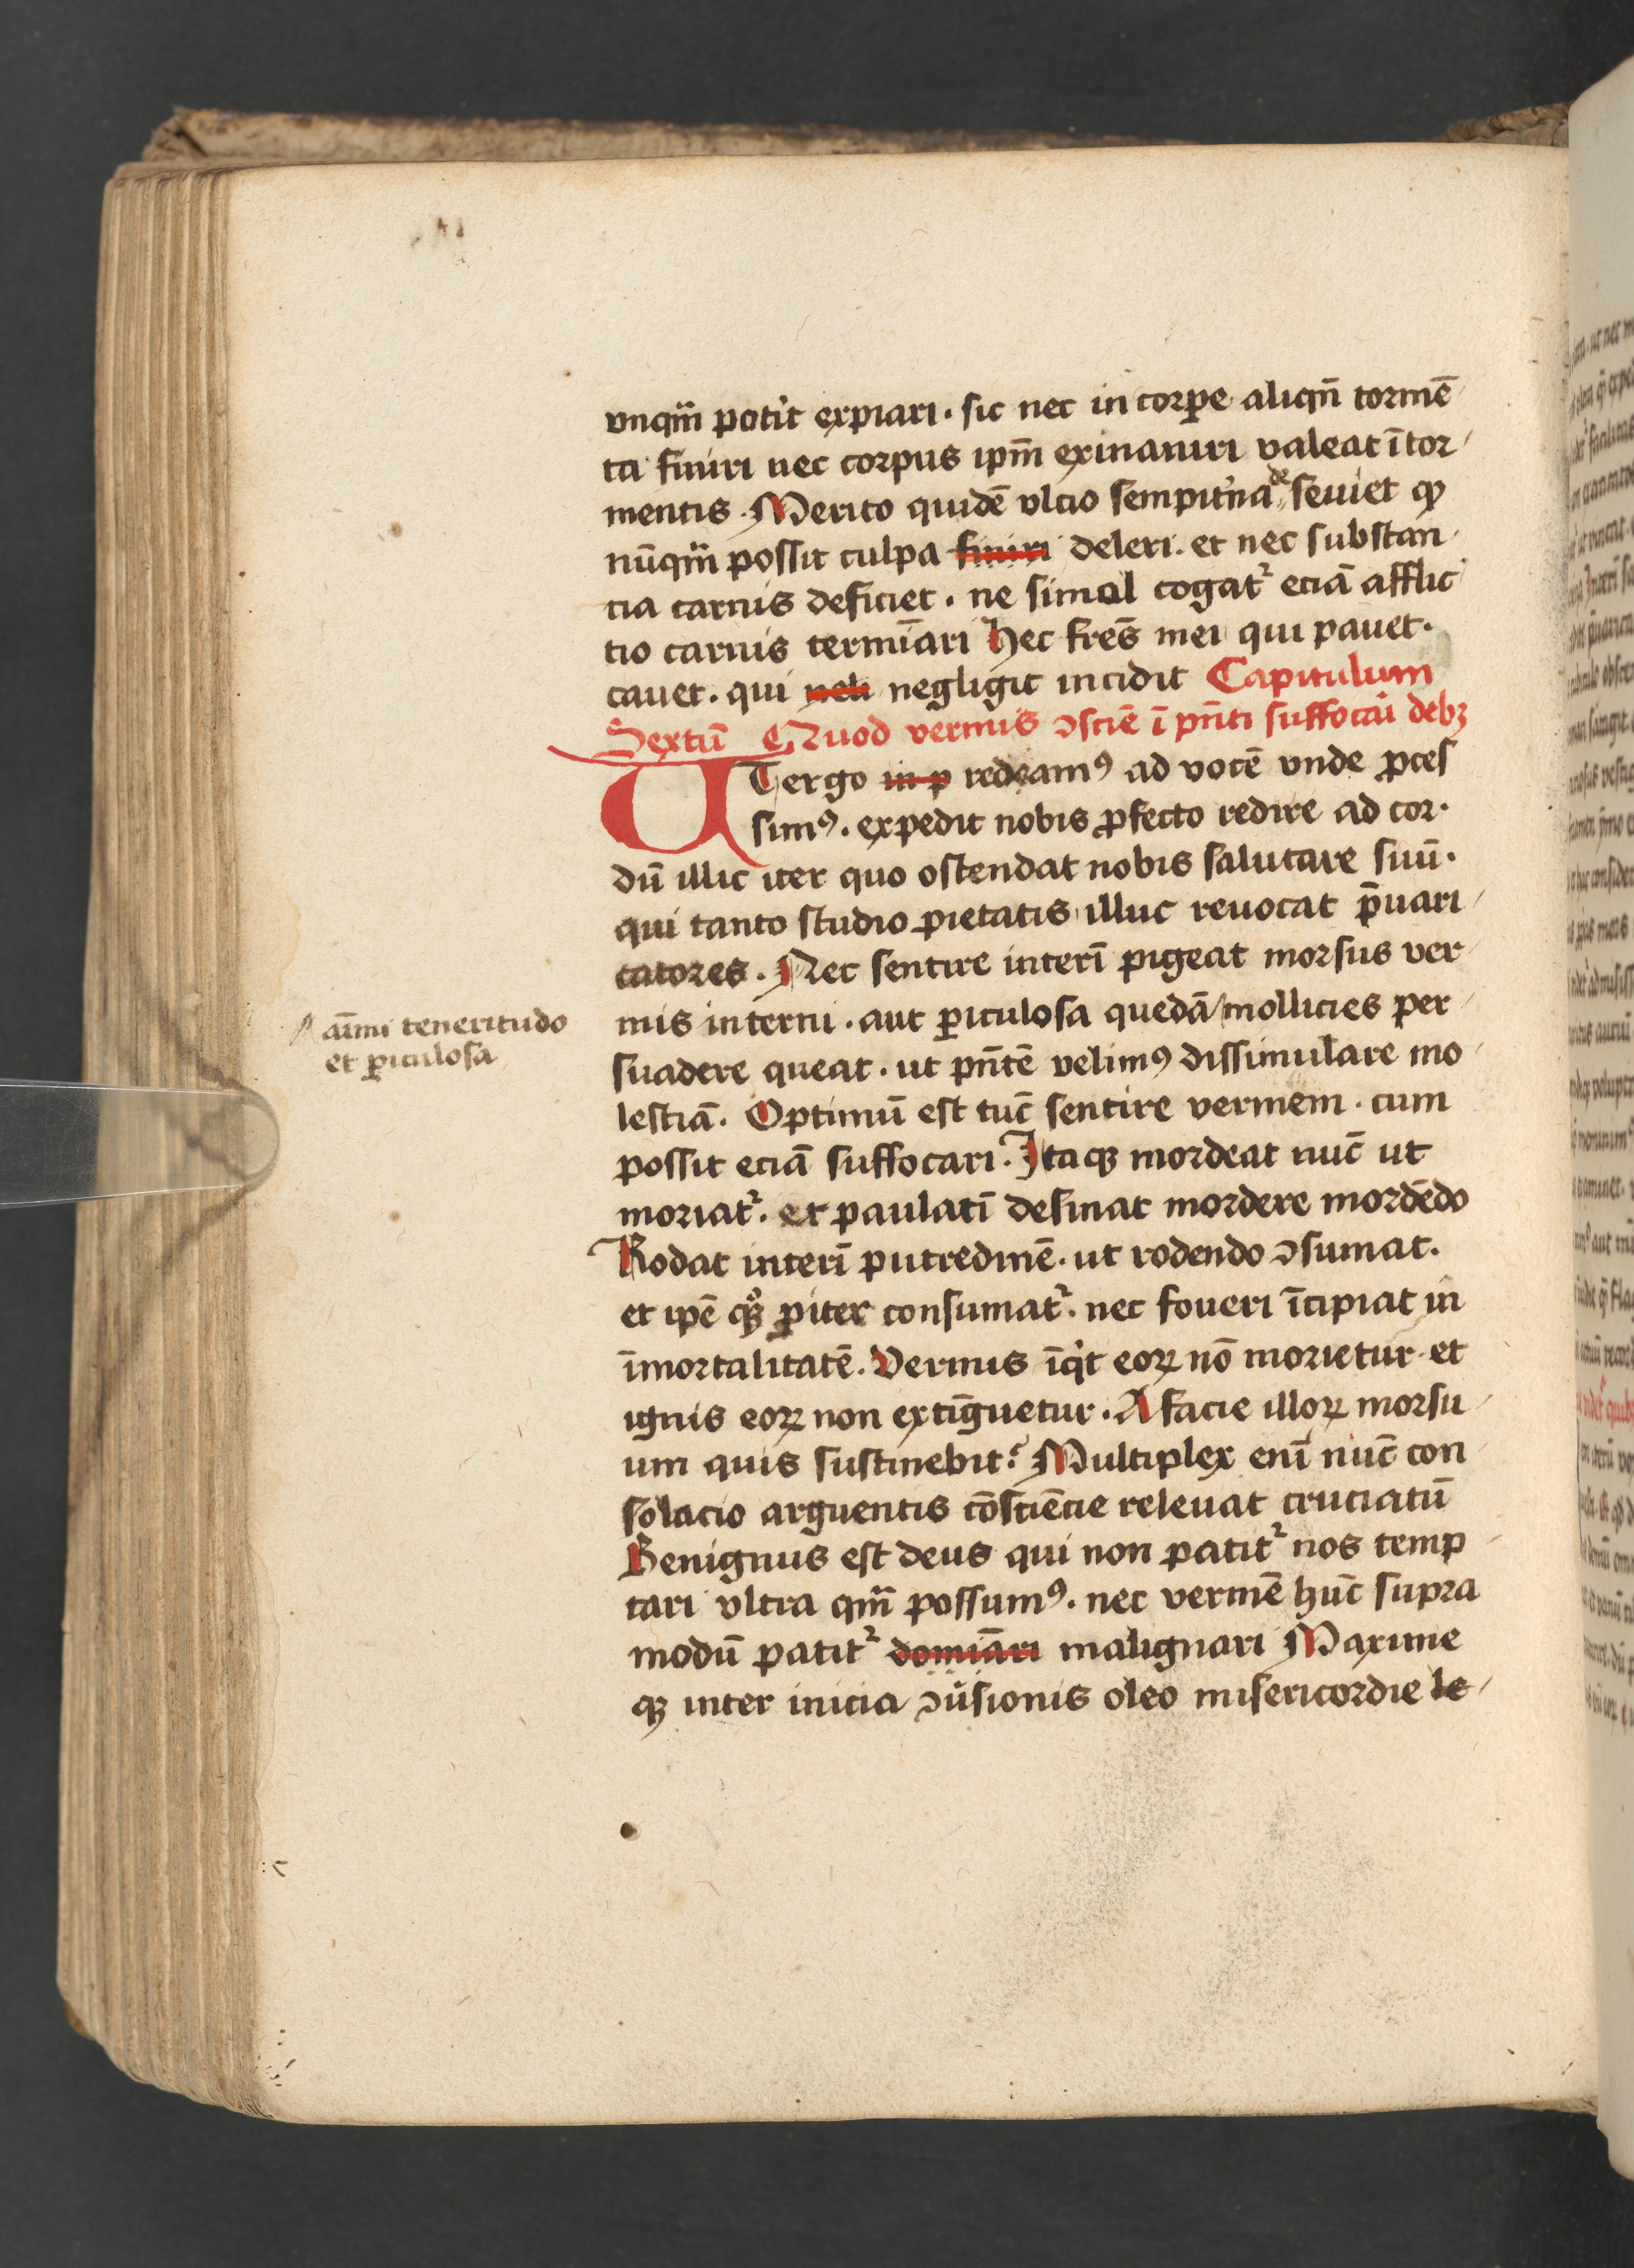 vnqm̄ potit expiari · sic nec in corꝑe aliqm̄ tormē
ta finiri nec corpus ipm̄ exinaniri valeat ī tor
mentis · Merito quidē vlcio sempit̾na de seuiet qꝫ
nūqm̄ possit culpa finiri deleri · et nec substan
cia carnis deficiet · ne simul cogat᷑ eciā afflic
tio carnis termīari Hec fr̄es mei qui pauet ·
cauet · qui neli negligit incidit Capitulum
Sextū Quod vermis ꝯsciē ī pn̄ti suffocari debꝫ
UT ergo in p redeamꝰ ad vocē vnde ꝓces
simꝰ · expedit nobis ꝓfecto redire ad cor ·
dū illic iter quo ostendat nobis salutare suū ·
qui tanto studio pietatis illuc reuocat p̄uari
catores · Nec sentire interī pigeat morsus ver
mis interni · aut ꝑiculosa quedā mollicies per
suadere queat · ut pn̄tē velimꝰ dissimulare mo
lestiā · Optimū est tūc sentire vermem · cum
possit eciā suffocari · Itaqꝫ mordeat nūc ut
moriat᷑ · et paulatī desinat mordere mordēdo
Rodat interī putredinē · ut rodendo ꝯsumat ·
et ipē qꝫ ꝑiter consumat᷑ · nec foueri īcipiat in
īmortalitatē · Vermis īqͥt eoꝝ nō morietur · et
ignis eoꝝ non extīguetur · A facie illoꝝ morsu
um quis sustinebit? Multiplex enī nūc con
solacio arguentis cōsciēcie releuat cruciatū
Benignus est deus qui non patit᷑ nos temp
tari vltra qm̄ possumꝰ · nec vermē hūc supra
modū patit᷑ domīari malignari Maxime
qꝫ inter inicia ꝯūsionis oleo misericordie le
aīmi teneritudo
et ꝑiculosa